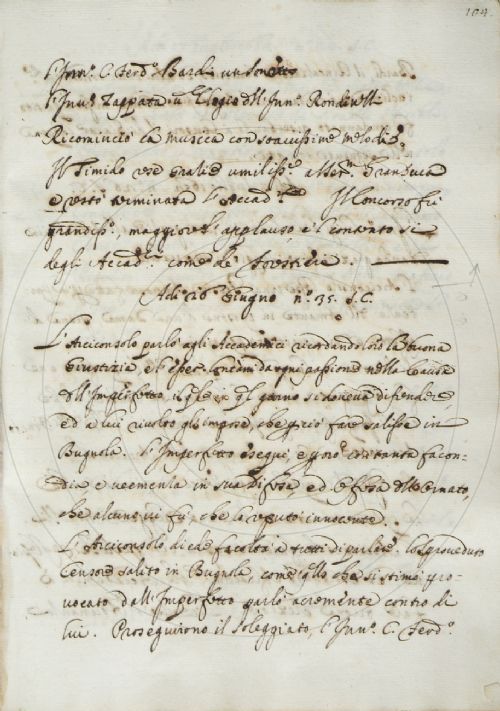 104.
l'Inn.º C. Ferd.º Bardi un Sonetto
l'Inn.º Zappata u. Elogio dell'Inn.º Rondinelli
Ricominciò la musica con soavissime melodie,
Il Timido rese gratie umiliss.e al Ser.º Granduca
e restò terminata l'Accad.a Il Concorso fù
grandiss.º, maggiore l'applauso e'l contento si
degli Accad.i come de' Forestieri
Adi 26 Giugno n.º 35. S.C.
L'Arciconsolo parlò agli Accademici ricordando loro la buona
Giustizia, e l'esser lontani da ogni passione nella Causa
dell'Imperfetto il quale in quel giorno si doveva difendere
ed a lui rivolto gl'impose, che perciò fare salisse in
Bugnola. L'Imperfetto eseguì, e perorò con tanta facon-
dia e veemenza in sua difesa, ed offesa dell'Ornato,
che alcuni vi fù, che lo reputò innocente.
L'Arciconsolo diede facoltà a tutti di parlare. Lo Sproveduto
Censore salito in Bugnola, come quello che si stimò pro-
vocato dall'Imperfetto parlò acremente contro di
lui. Proseguirono il Soleggiato, l'Inn.º C. Ferd.º